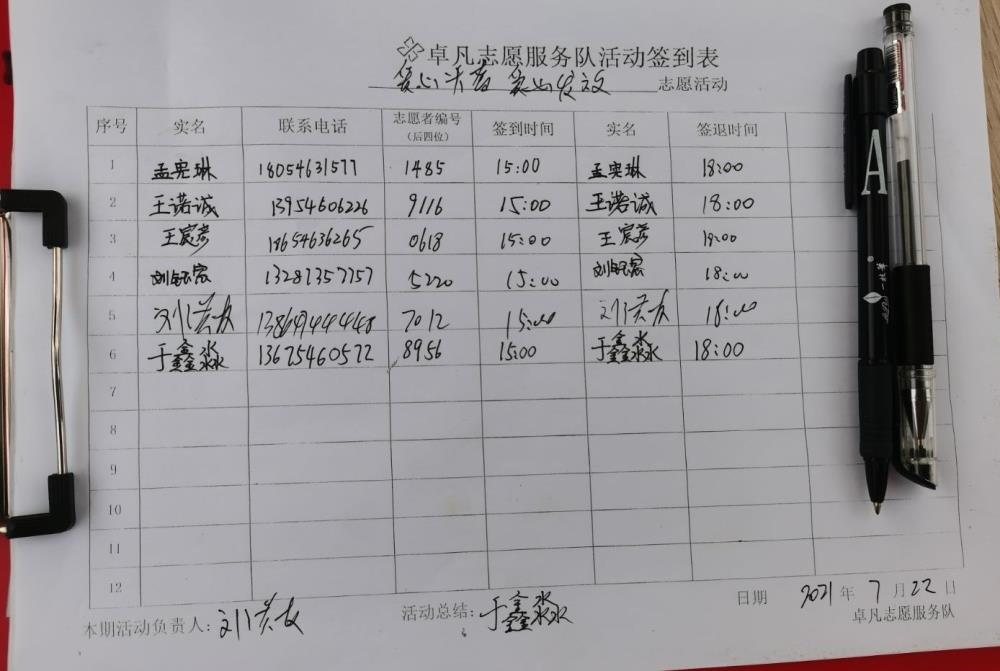 卓凡志愿服务队活动签到表
爱心 志愿活动
序号 实名 联系电话 志愿者编号(后四位) 签到时间 实名 签退时间
1 孟宪琳 18054631577 1485 15:00 孟宪琳 18:00
2 王诺诚 13954606226 9116 15:00 王诺诚 18:00
3 王宸彦 18654636265 0618 15:00 王宸彦 18:00
4 刘钰宸 13287357757 5220 15:00 刘钰宸 18:00
5 7012 15:00 18:00
6 于鑫淼 13675460572 8956 15:00 于鑫淼 18:00
7
8
9
10
11
12
日期 2021年7月22日
本期活动负责人: 活动总结: 于鑫淼 卓凡志愿服务队
A